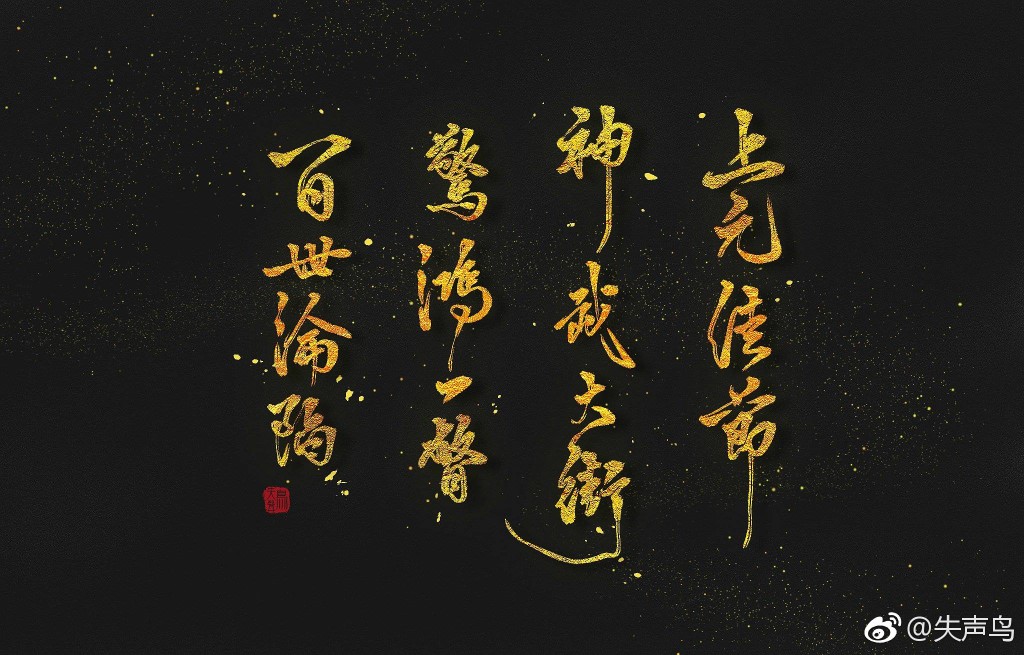 上元佳節
神武大街
驚鴻一瞥
百世淪陷
@失声鸟